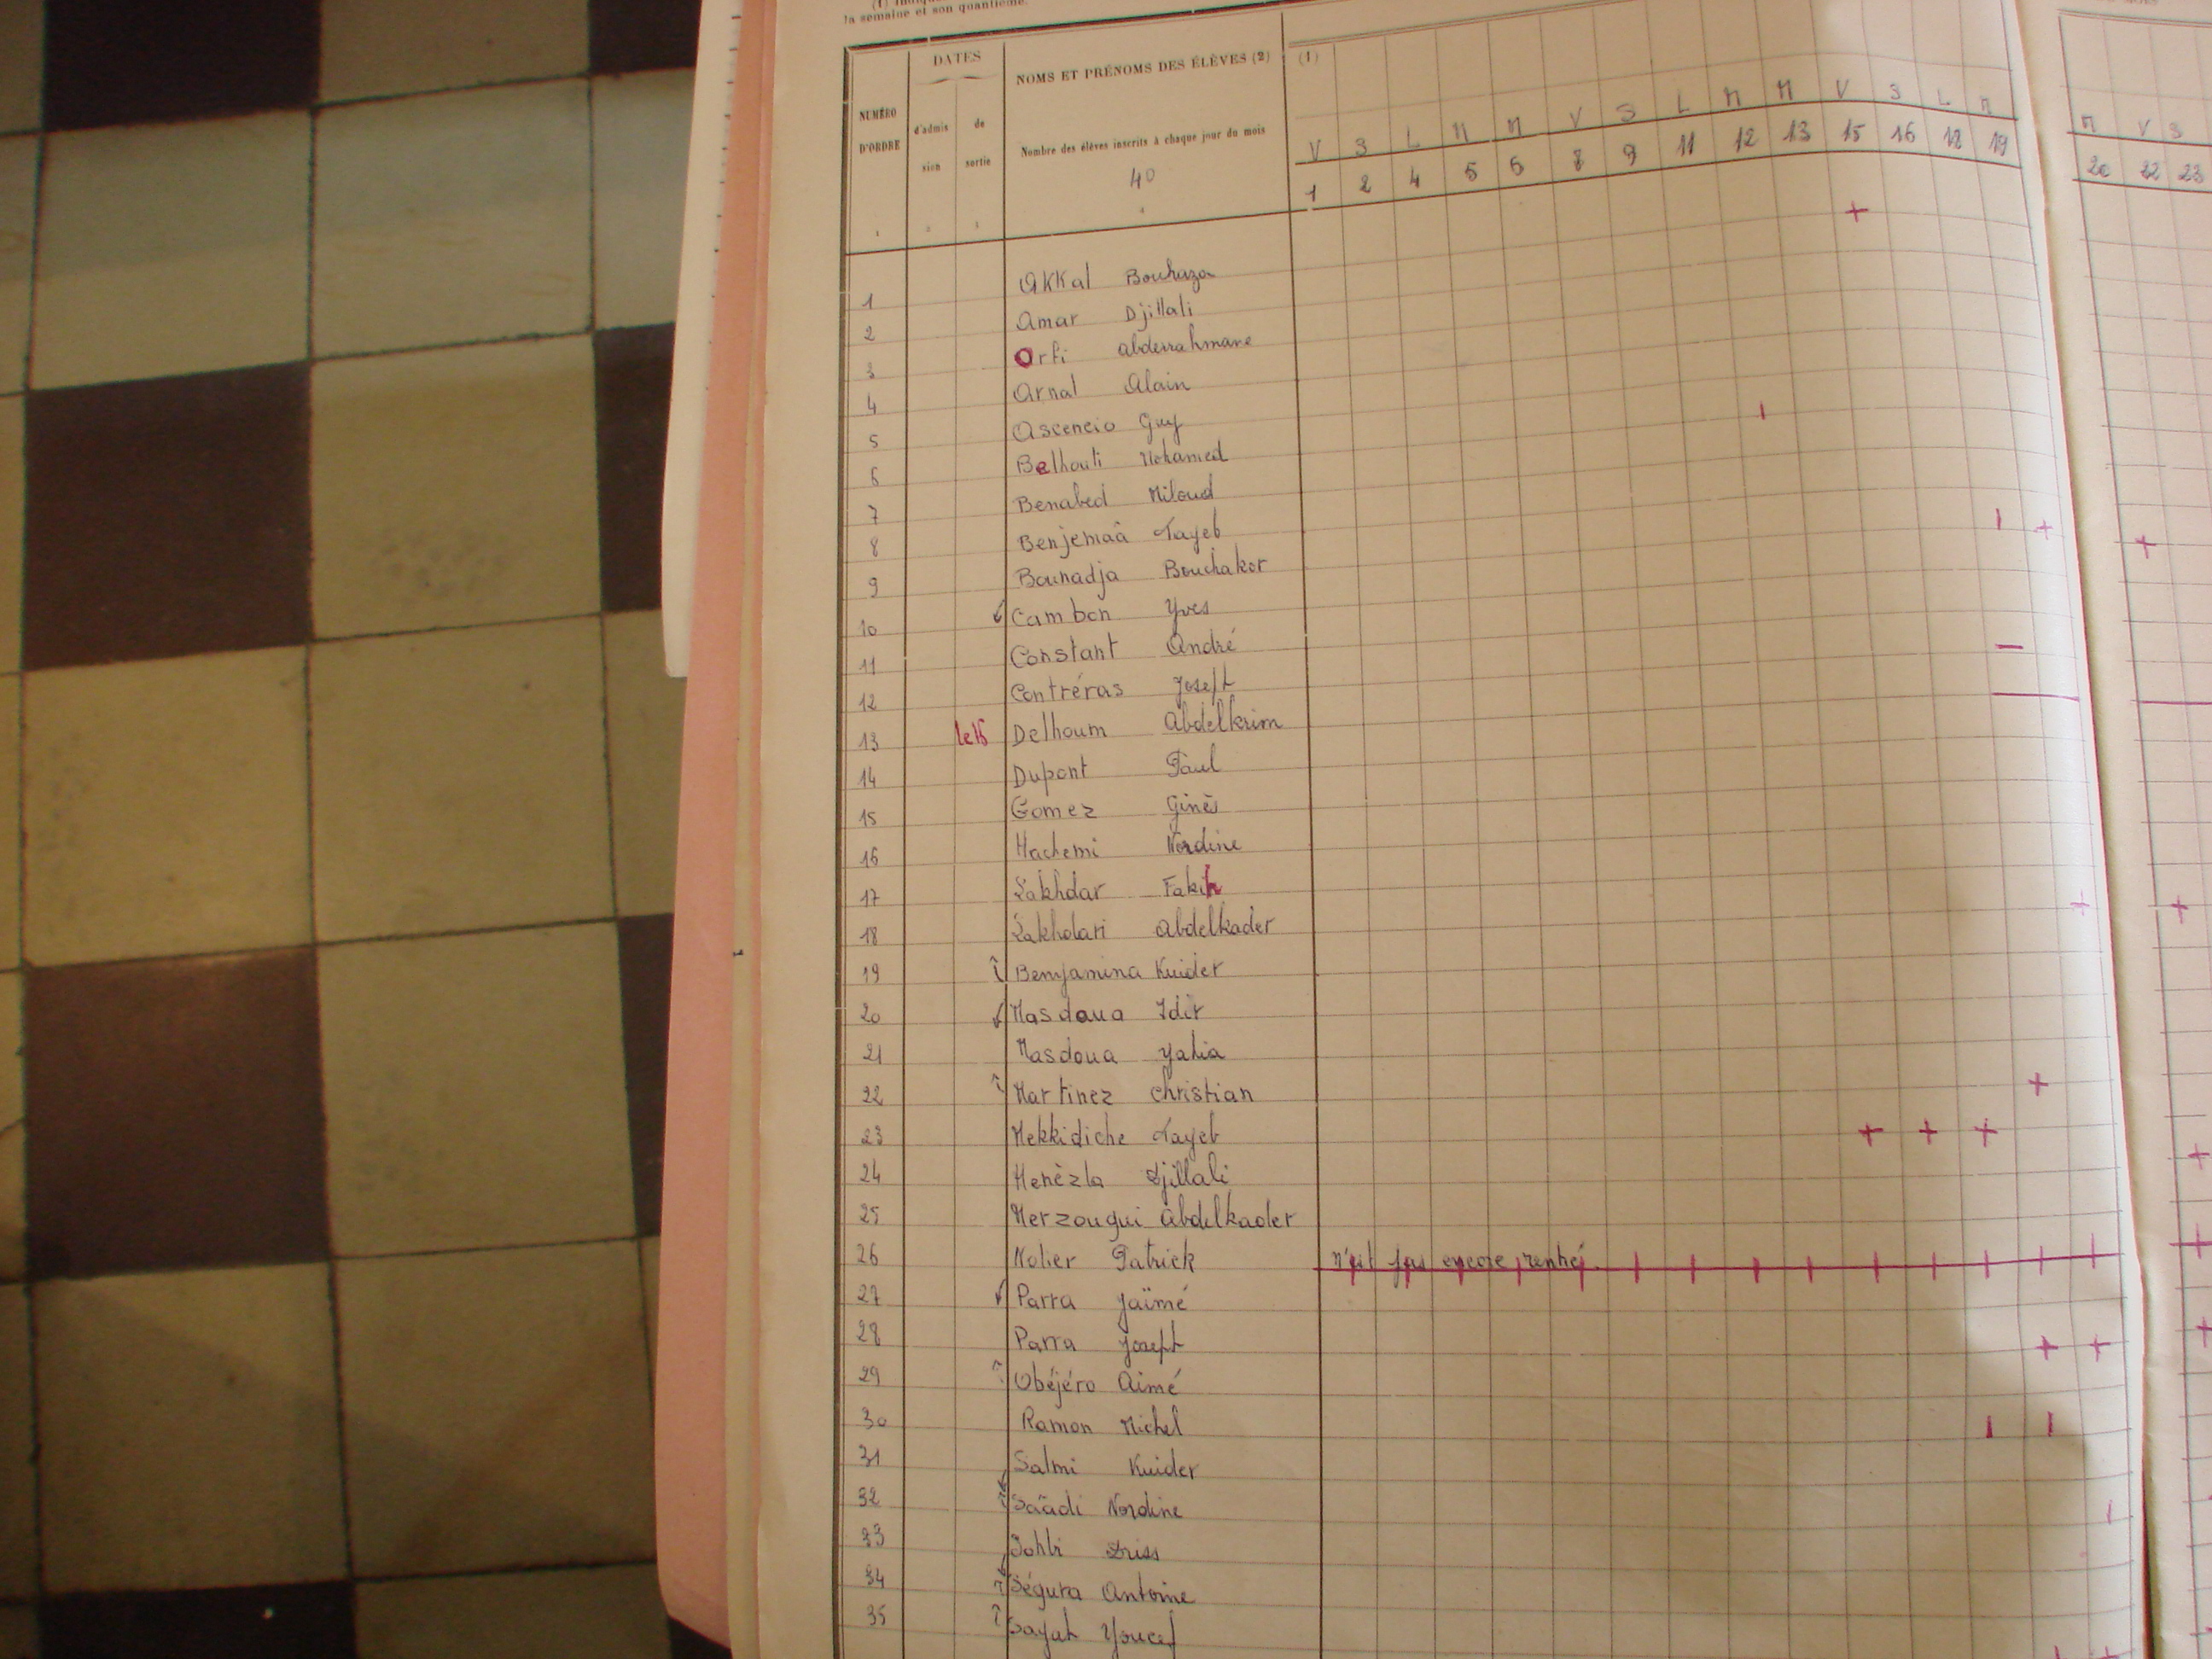 la semaine et son quantième.
NUMÉRO D'ORDRE
DATES
d'admission
de sortie
NOMS ET PRÉNOMS DES ÉLÈVES (2)
Nombre des élèves inscrits à chaque jour du mois
40
(1)
V S L M M V S L M M V S L M
1 2 4 5 6 8 9 11 12 13 15 16 18 19
M V S
20 22 23
1 Akkal Bouhaza
2 Amar Djillali
3 Orfi Abderrahmane
4 Arnal Alain
5 Ascencio Guy
6 Belhouli Mohamed
7 Benabed Miloud
8 Benjemaâ Tayeb
9 Bounadja Bouchaker
10 Cambon Yves
11 Constant André
12 Contréras Joseph
13 le 15 Delhoum Abdelkrim
14 Dupont Paul
15 Gomez Ginès
16 Hachemi Nordine
17 Lakhdar Fakih
18 Lakhdari Abdelkader
19 Benyamina Kuider
20 Masdoua Idir
21 Masdoua Yahia
22 Martinez Christian
23 Mekkidiche Tayeb
24 Menèzla Djillali
25 Merzougui Abdelkader
26 Nolier Patrick n'est pas encore rentré
27 Parra Jaïmé
28 Parra Joseph
29 Obéjéro Aimé
30 Ramon Michel
31 Salmi Kuider
32 Saâdi Nordine
33 Sohbi Driss
34 Ségura Antoine
35 Sayah Youcef